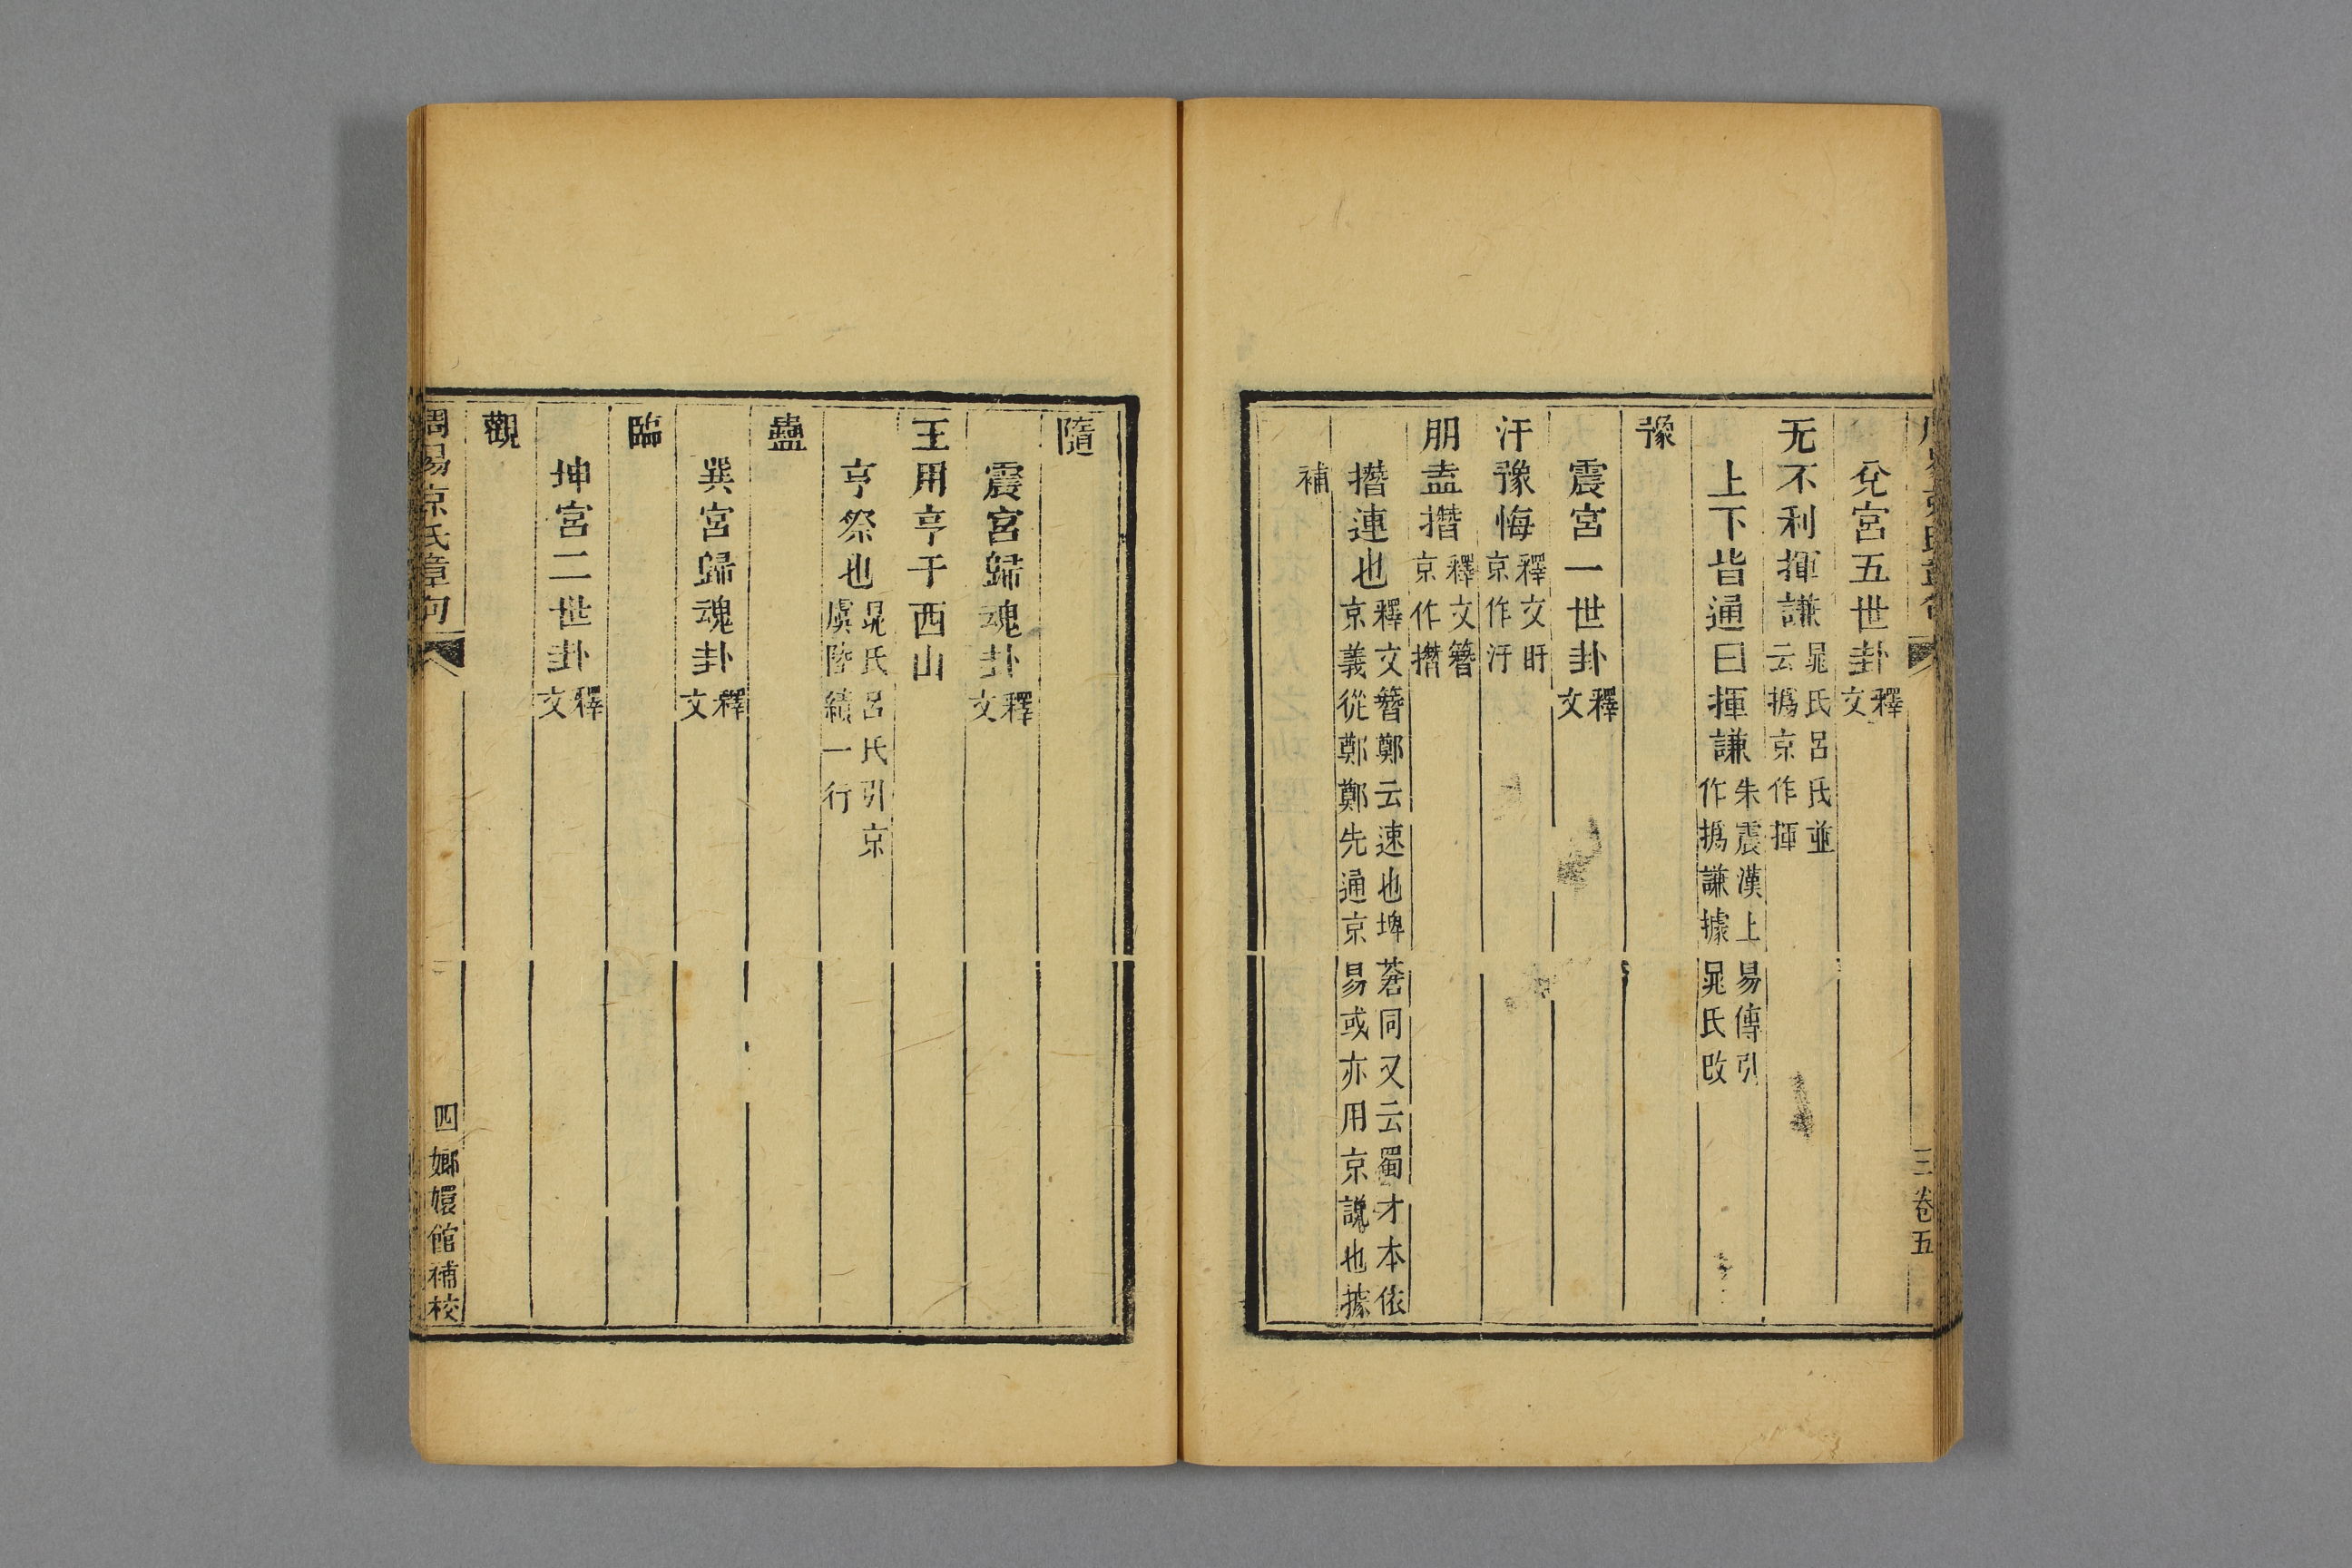 周易京氏章句 三 卷五
兌宮五世卦釋文
无不利揮謙晁氏呂氏並云撝京作揮
上下皆通曰揮謙朱震漢上易傳引作撝謙據晁氏改
豫
震宮一世卦釋文
汙豫悔釋文盱京作汙
朋盍撍釋文簪京作撍
撍連也釋文簪鄭云速也埤蒼同又云蜀才本依京義從鄭鄭先通京易或亦用京說也據
補
隨
震宮歸魂卦釋文
王用亨于西山
亨祭也晁氏呂氏引京虞陸績一行
蠱
巽宮歸魂卦釋文
臨
坤宮二世卦釋文
觀
周易京氏章句 四 嫏嬛館補校